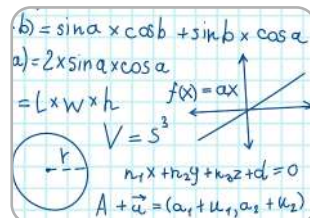 .b) = sina x cosb + sinb x cosa
a) = 2 x sina x cosa
= L x w x h
f(x) = ax
V = s³
r
n₁x + n₂y + n₃z + d = 0
A + u⃗ = (a₁ + u₁, a₂ + u₂)